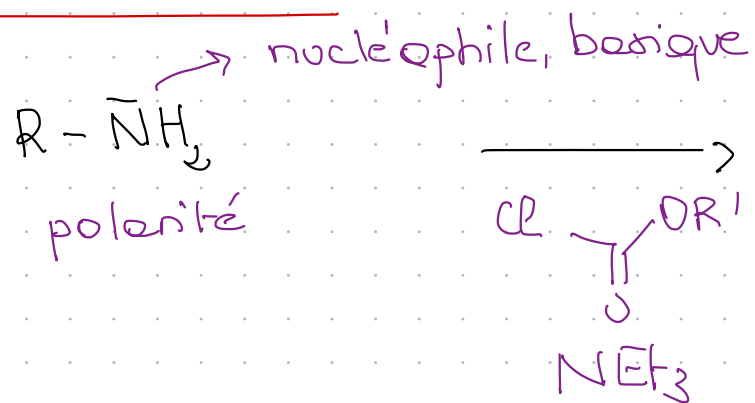 nucléophile, basique
R - NH2
polarité
Cl OR'
O
NEt3